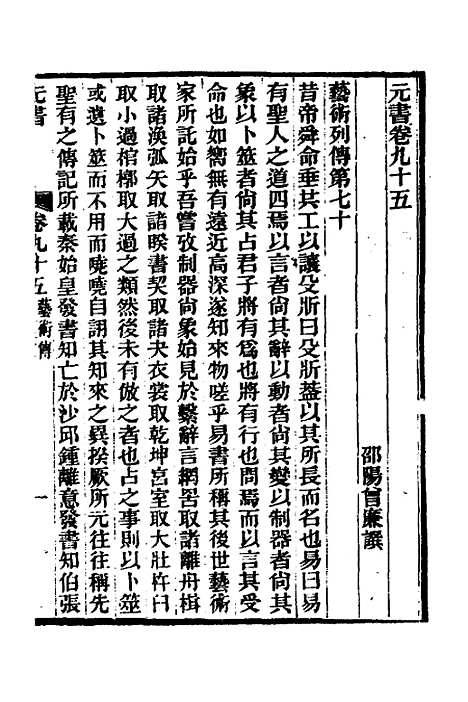 元書卷九十五
邵陽曾廉譔
藝術列傳第七十
昔帝舜命垂共工以讓殳斨曰殳斨蓋以其所長而名也易曰易
有聖人之道四焉以言者尙其辭以動者尙其變以制器者尙其
象以卜筮者尙其占君子將有爲也將有行也問焉而以言其受
命也如嚮無有遠近高深遂知來物嗟乎易書所稱其後世藝術
家所託始乎吾嘗攷制器尙象始見於繫辭言網罟取諸離舟楫
取諸渙弧矢取諸睽書契取諸夬衣裳取乾坤宮室取大壯杵臼
取小過棺椁取大過之類然後未有倣之者也占之事則以卜筮
或遺卜筮而不用而曉曉自詡其知來之異揆厥所元往往稱先
聖有之傳記所載秦始皇發書知亡於沙邱鍾離意發書知伯張
元書
卷九十五藝術傳
一